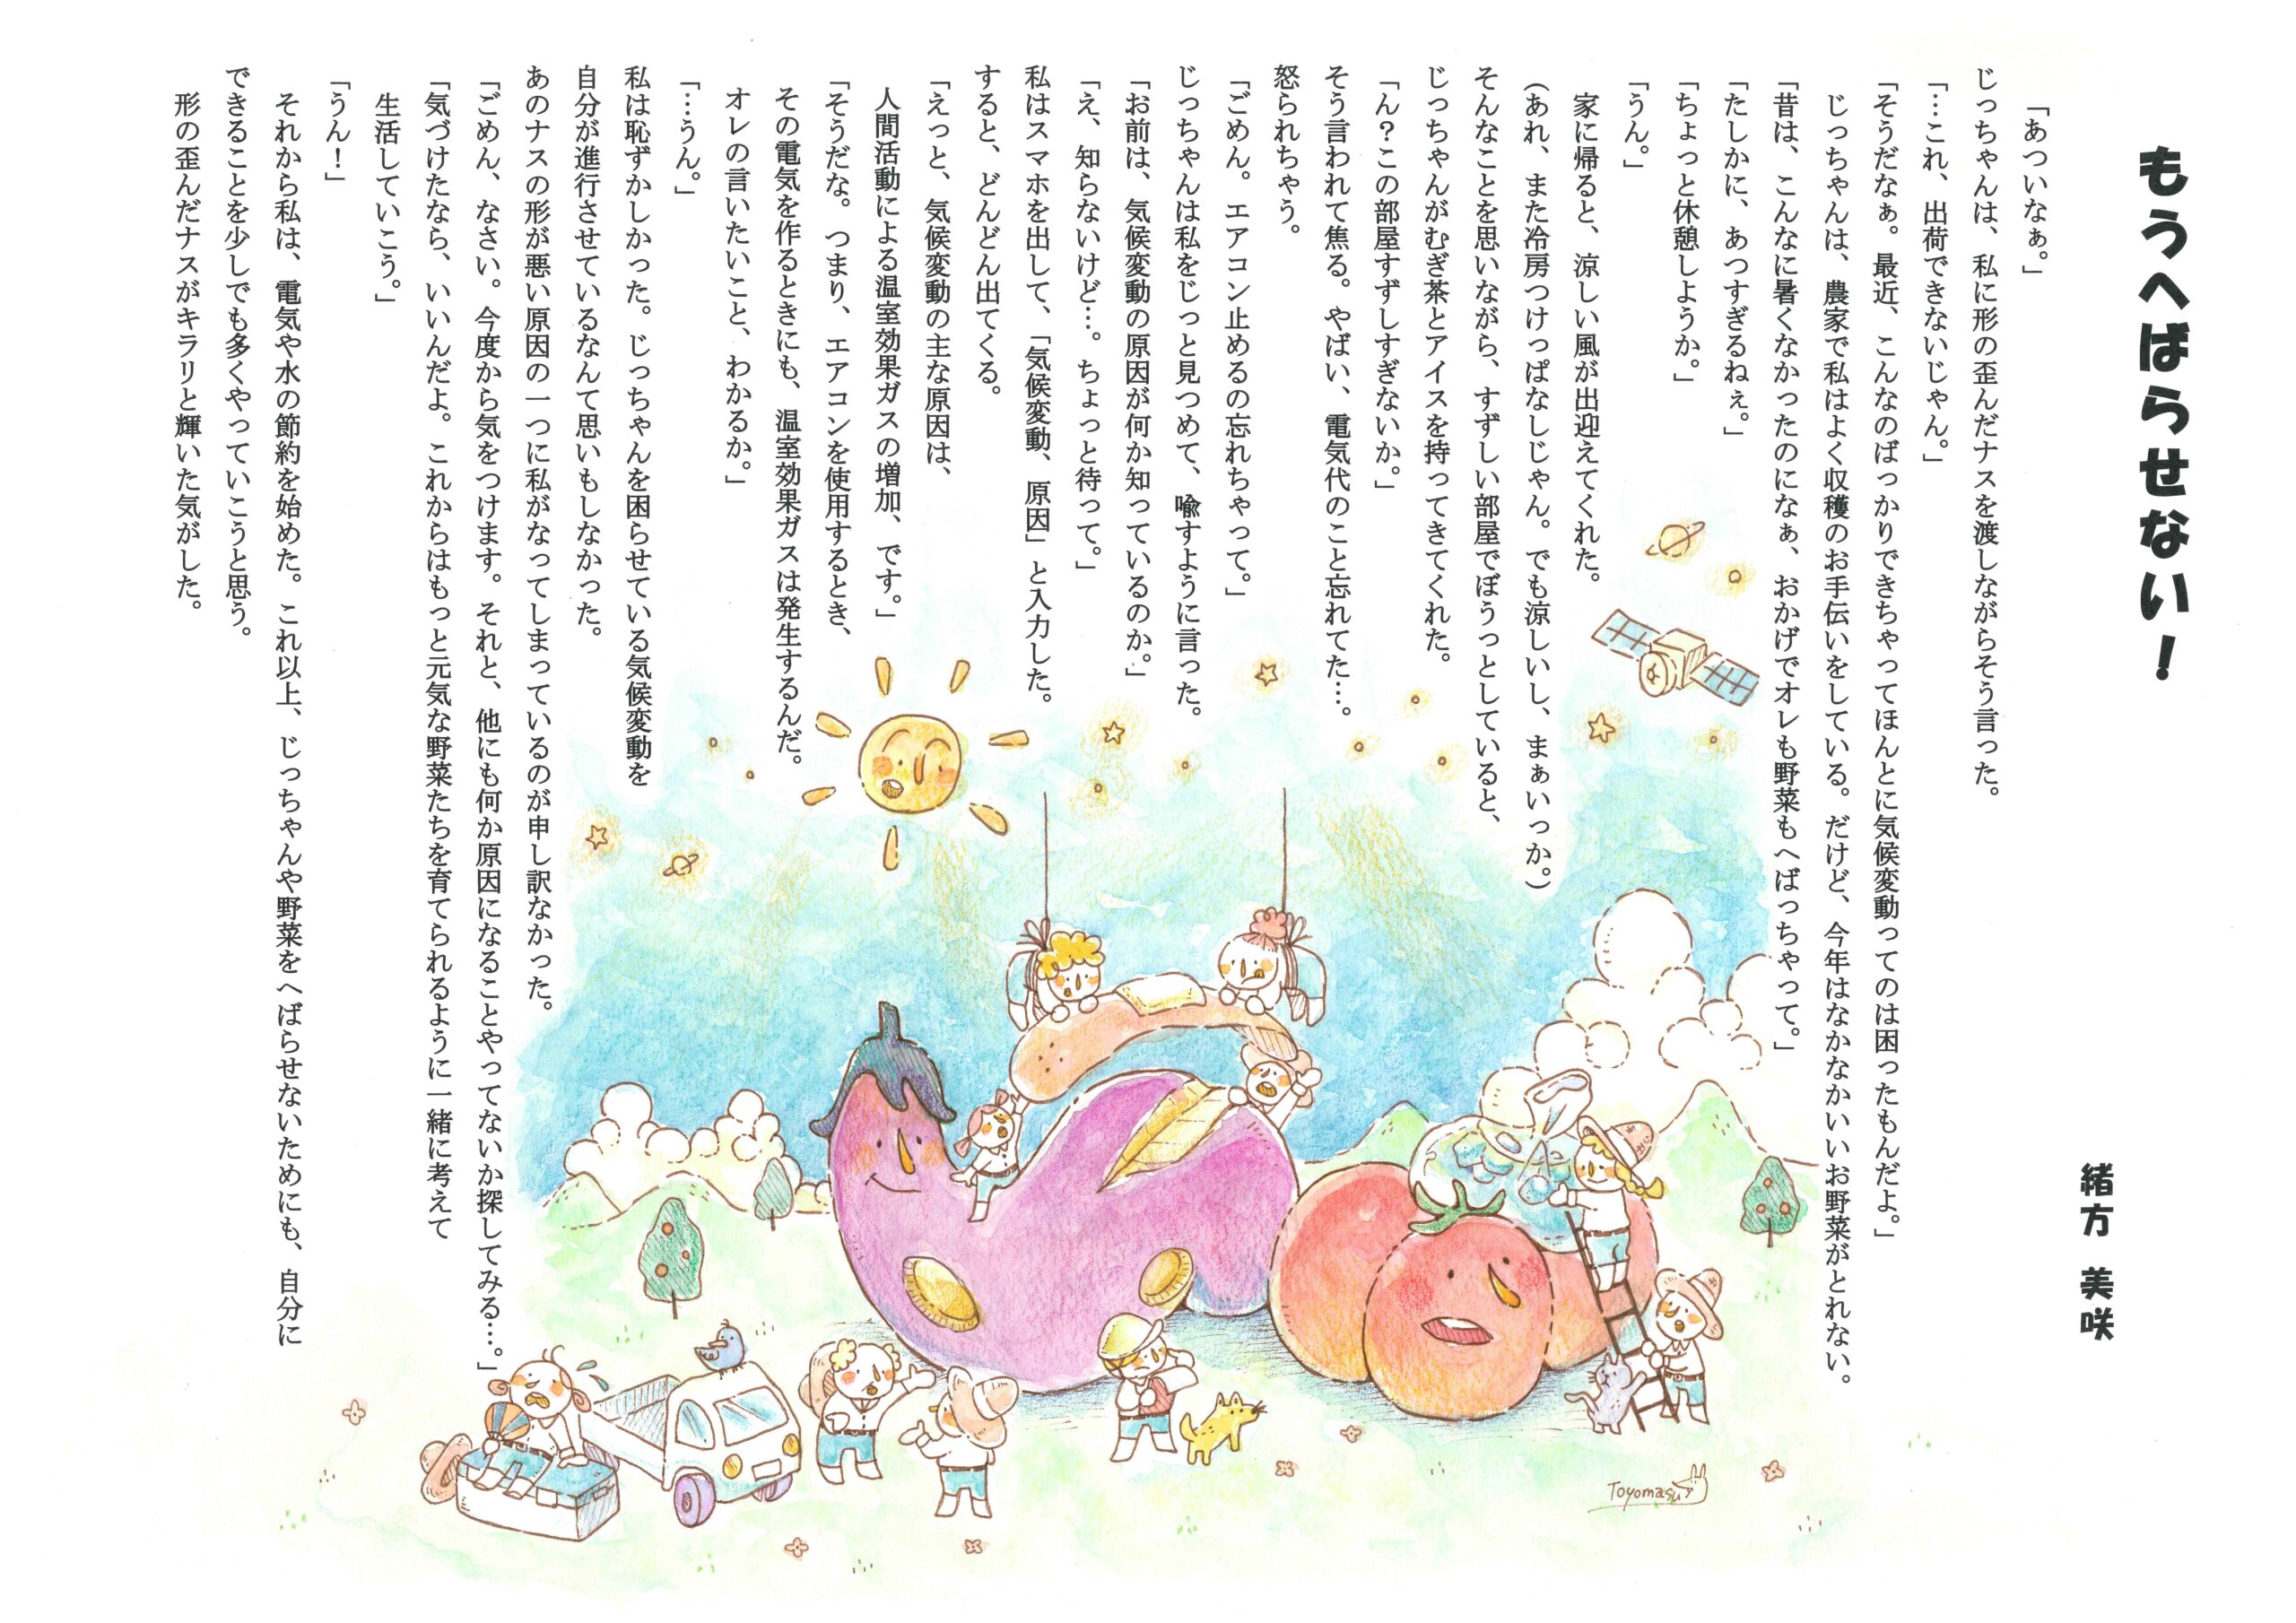 もうへばらせない！
緒方　美咲
「あついなぁ。」
じっちゃんは、私に形の歪んだナスを渡しながらそう言った。
「…これ、出荷できないじゃん。」
「そうだなぁ。最近、こんなのばっかりできちゃってほんとに気候変動ってのは困ったもんだよ。」
じっちゃんは、農家で私はよく収穫のお手伝いをしている。だけど、今年はなかなかいいお野菜がとれない。
「昔は、こんなに暑くなかったのになぁ、おかげでオレも野菜もへばっちゃって。」
「たしかに、あつすぎるねぇ。」
「ちょっと休憩しようか。」
「うん。」
家に帰ると、涼しい風が出迎えてくれた。
(あれ、また冷房つけっぱなしじゃん。でも涼しいし、まぁいっか。)
そんなことを思いながら、すずしい部屋でぼうっとしていると、
じっちゃんがむぎ茶とアイスを持ってきてくれた。
「ん？この部屋すずしすぎないか。」
そう言われて焦る。やばい、電気代のこと忘れてた…。
怒られちゃう。
「ごめん。エアコン止めるの忘れちゃって。」
じっちゃんは私をじっと見つめて、喩すように言った。
「お前は、気候変動の原因が何か知っているのか。」
「え、知らないけど…。ちょっと待って。」
私はスマホを出して、「気候変動、原因」と入力した。
すると、どんどん出てくる。
「えっと、気候変動の主な原因は、
人間活動による温室効果ガスの増加、です。」
「そうだな。つまり、エアコンを使用するとき、
その電気を作るときにも、温室効果ガスは発生するんだ。
オレの言いたいこと、わかるか。」
「…うん。」
私は恥ずかしかった。じっちゃんを困らせている気候変動を
自分が進行させているなんて思いもしなかった。
あのナスの形が悪い原因の一つに私がなってしまっているのが申し訳なかった。
「ごめん、なさい。今度から気をつけます。それと、他にも何か原因になることやってないか探してみる…。」
「気づけたなら、いいんだよ。これからはもっと元気な野菜たちを育てられるように一緒に考えて
生活していこう。」
「うん！」
それから私は、電気や水の節約を始めた。これ以上、じっちゃんや野菜をへばらせないためにも、自分に
できることを少しでも多くやっていこうと思う。
形の歪んだナスがキラリと輝いた気がした。
Toyomasu